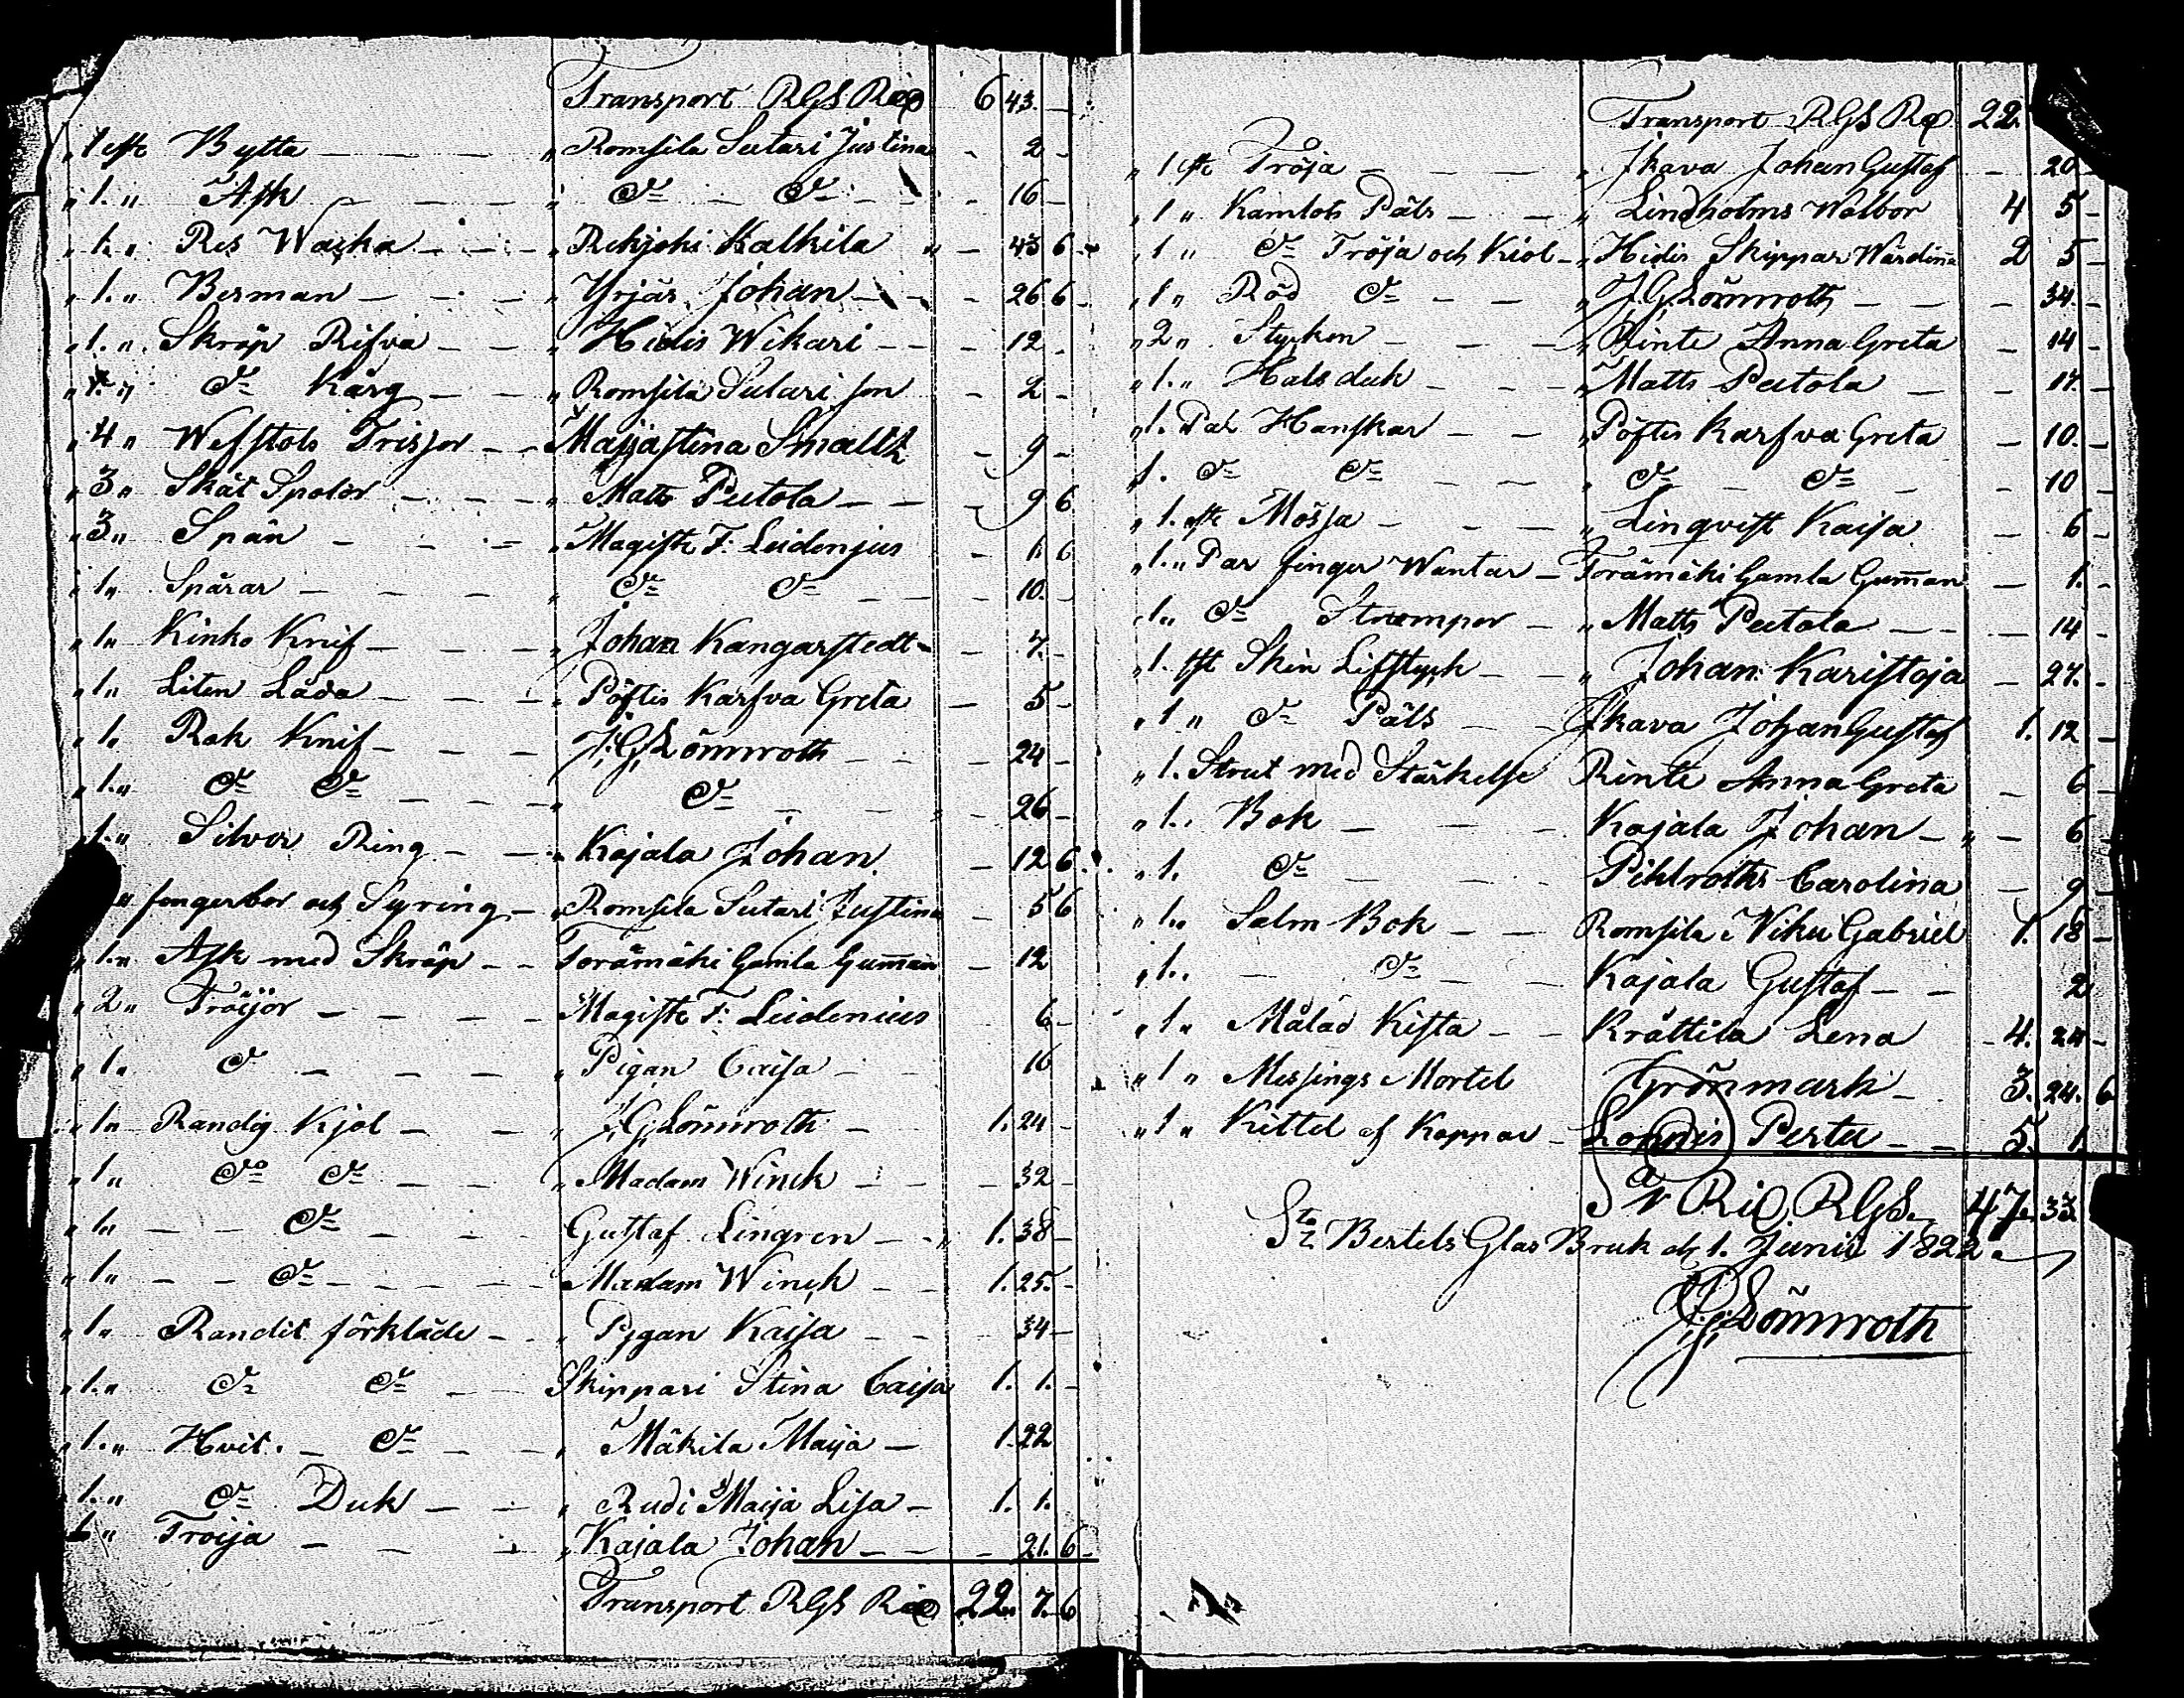 Transport RGS Rid 6 43. —
„ 1 st: Bytta — — — „ Romsila Sutari Justina - 2 -
„ 1. „ Ask — — — „ do do - 16 -
„ 1. „ Res Wacka — — „ Rekijoki Kalkila „ - 43 6
„ 1. „ Besman — — — „ Yrjäs Johan — - 26 6
„ 1. „ Skräp Rifva — — „ Hidis Wikari - - - 12 -
„ 1. „ do Kårg — — „ Romsila Sutari son - 2 -
„ 4 „ Wefstols Trissor - - Majjastina Smaltz - 9 -
„ 3 „ Skåt Spolor - - - „ Matts Peetola — — - 9 6
„ 3 „ Spån — - - „ Magistr F: Leidenius - 1. 6
„ 1 „ Spårar — — - „ do do - - - 10. -
„ 1 „ Kinko Knif — - - „ Johan Kangarstedt - - 7. -
„ 1 „ Liten Låda — — - „ Pöftis Karfva Greta — 5 -
„ 1. Rak Knif — — - „ J:G:Lönnroth - - - 24 -
„ 1. „ do do — — - „ do — - - 26 -
1. „ Silver Ring - - „ Kajala Johan - 12 6
„ fingerbor och Syring - „ Romsila Sutari Justina - 5 6
„ 1. „ Ask med Skräp - - Torämäki Gamla Gumman - 12
„ 2 „ Tröijor — - - - Magistr F: Leidenius 6 -
„ 1. do — — — „ Pigan Caisa - - 16
„ 1 „ Randig Kjol — - „ J.G.Lönnroth - 1. 24 -
„ 1 „ do do — - - „ Madam Winck - - - 32 -
„ 1 „ — - do - - Gustaf Lingren - - „ 1. 38 -
„ 1 „ — - do — — - „ Madam Winck - - 1. 25. -
„ 1 „ Randit förkläde - - „ Pigan Kaisa — - - 34 -
„ 1. „ do do — - Skippari Stina Caisa 1. 1. -
„ 1. „ Hvit. - do — - „ Mäkila Maija — 1. 22
„ 1. „ do Duk — - „ Rudi Maija Lisa - 1. 1.
„ Troija — - - - „ Kajala Johan - - - 21. 6 -
Transport RGS Rid 22. 7. 6
Transport RGS Rd 22.
„ 1 st: Tröja - - — „ Jkava Johan Gustaf - 20 -
„ 1 „ Kamlots Päls - - „ Lindholms Walbor 4 5 -
„ 1 „ do Tröja och Kiol - „ Hidis Skippar Wärdina 2 5 -
„ 1 „ Röd do - - „ J.G.Lönnroth - - - 34. -
„ 2 „ Stycken - - - „ Rinte Anna Greta - 14 -
„ 1. „ Halsduk - - - „ Matts Peetola — - 17. -
„ 1. Par Hanskar - - „ Pöftis Karfva Greta - 10. -
„ 1. do do - - „ do - do - - 10 -
„ 1. st: Mössa - - - „ Linqvist Kaisa - 6 -
„ 1. „ Par finger Wantar - Torämäki Gamla Gumman - 1. -
1. „ do Strumpor - „ Matts Peetola - - - 14 -
„ 1. st Skin Lifstyck - - „ Johan Karistoja - 27. -
„ 1 „ do Päls - - Jkava Johan Gustaf 1. 12 -
„ 1. Strut med Stärkelse Rinte Anna Greta - 6 -
„ 1. Bok — - - Kajala Johan - „ - 6 -
„ 1. do - - - Pihlroths Carolina - 9 -
„ 1. „ Salm Bok - - Romsila Niku Gabriel 1. 18 -
„ 1. - do - - Kajala Gustaf - - 2
„ 1 „ Målad Kista - - Krättila Lena - 4. 24 -
„ 1 „ Messings Mortel Grönmark - 3. 24. 6
„ 1 „ Kittel af Koppar - Lonnis Pertu - - 5. 1.
Sa Rid RGS. 47. 33
Stz Bertels Glas Bruk d 1. Junii 1822
J.G.Lönnroth